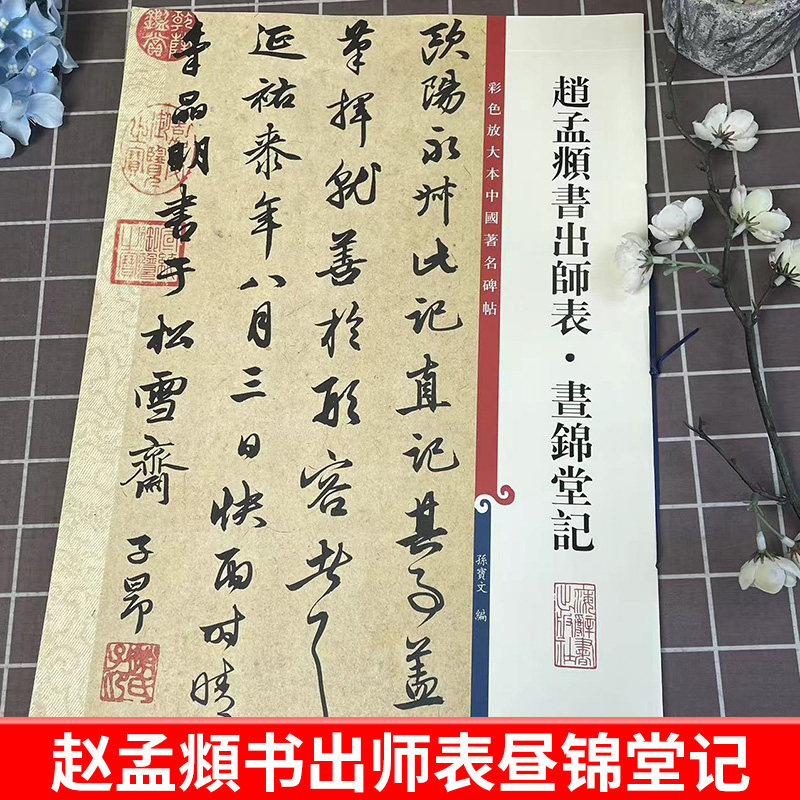 趙孟頫書出師表·晝錦堂記
彩色放大本中國著名碑帖
孫寶文 編
歐陽永叔此記直記其事蓋
筆揮就善於形容者
延祐年八月三日快雨時晴
明書于松雪齋 子昂
乾隆鑑賞
趙氏子昂
赵孟頫书出师表昼锦堂记